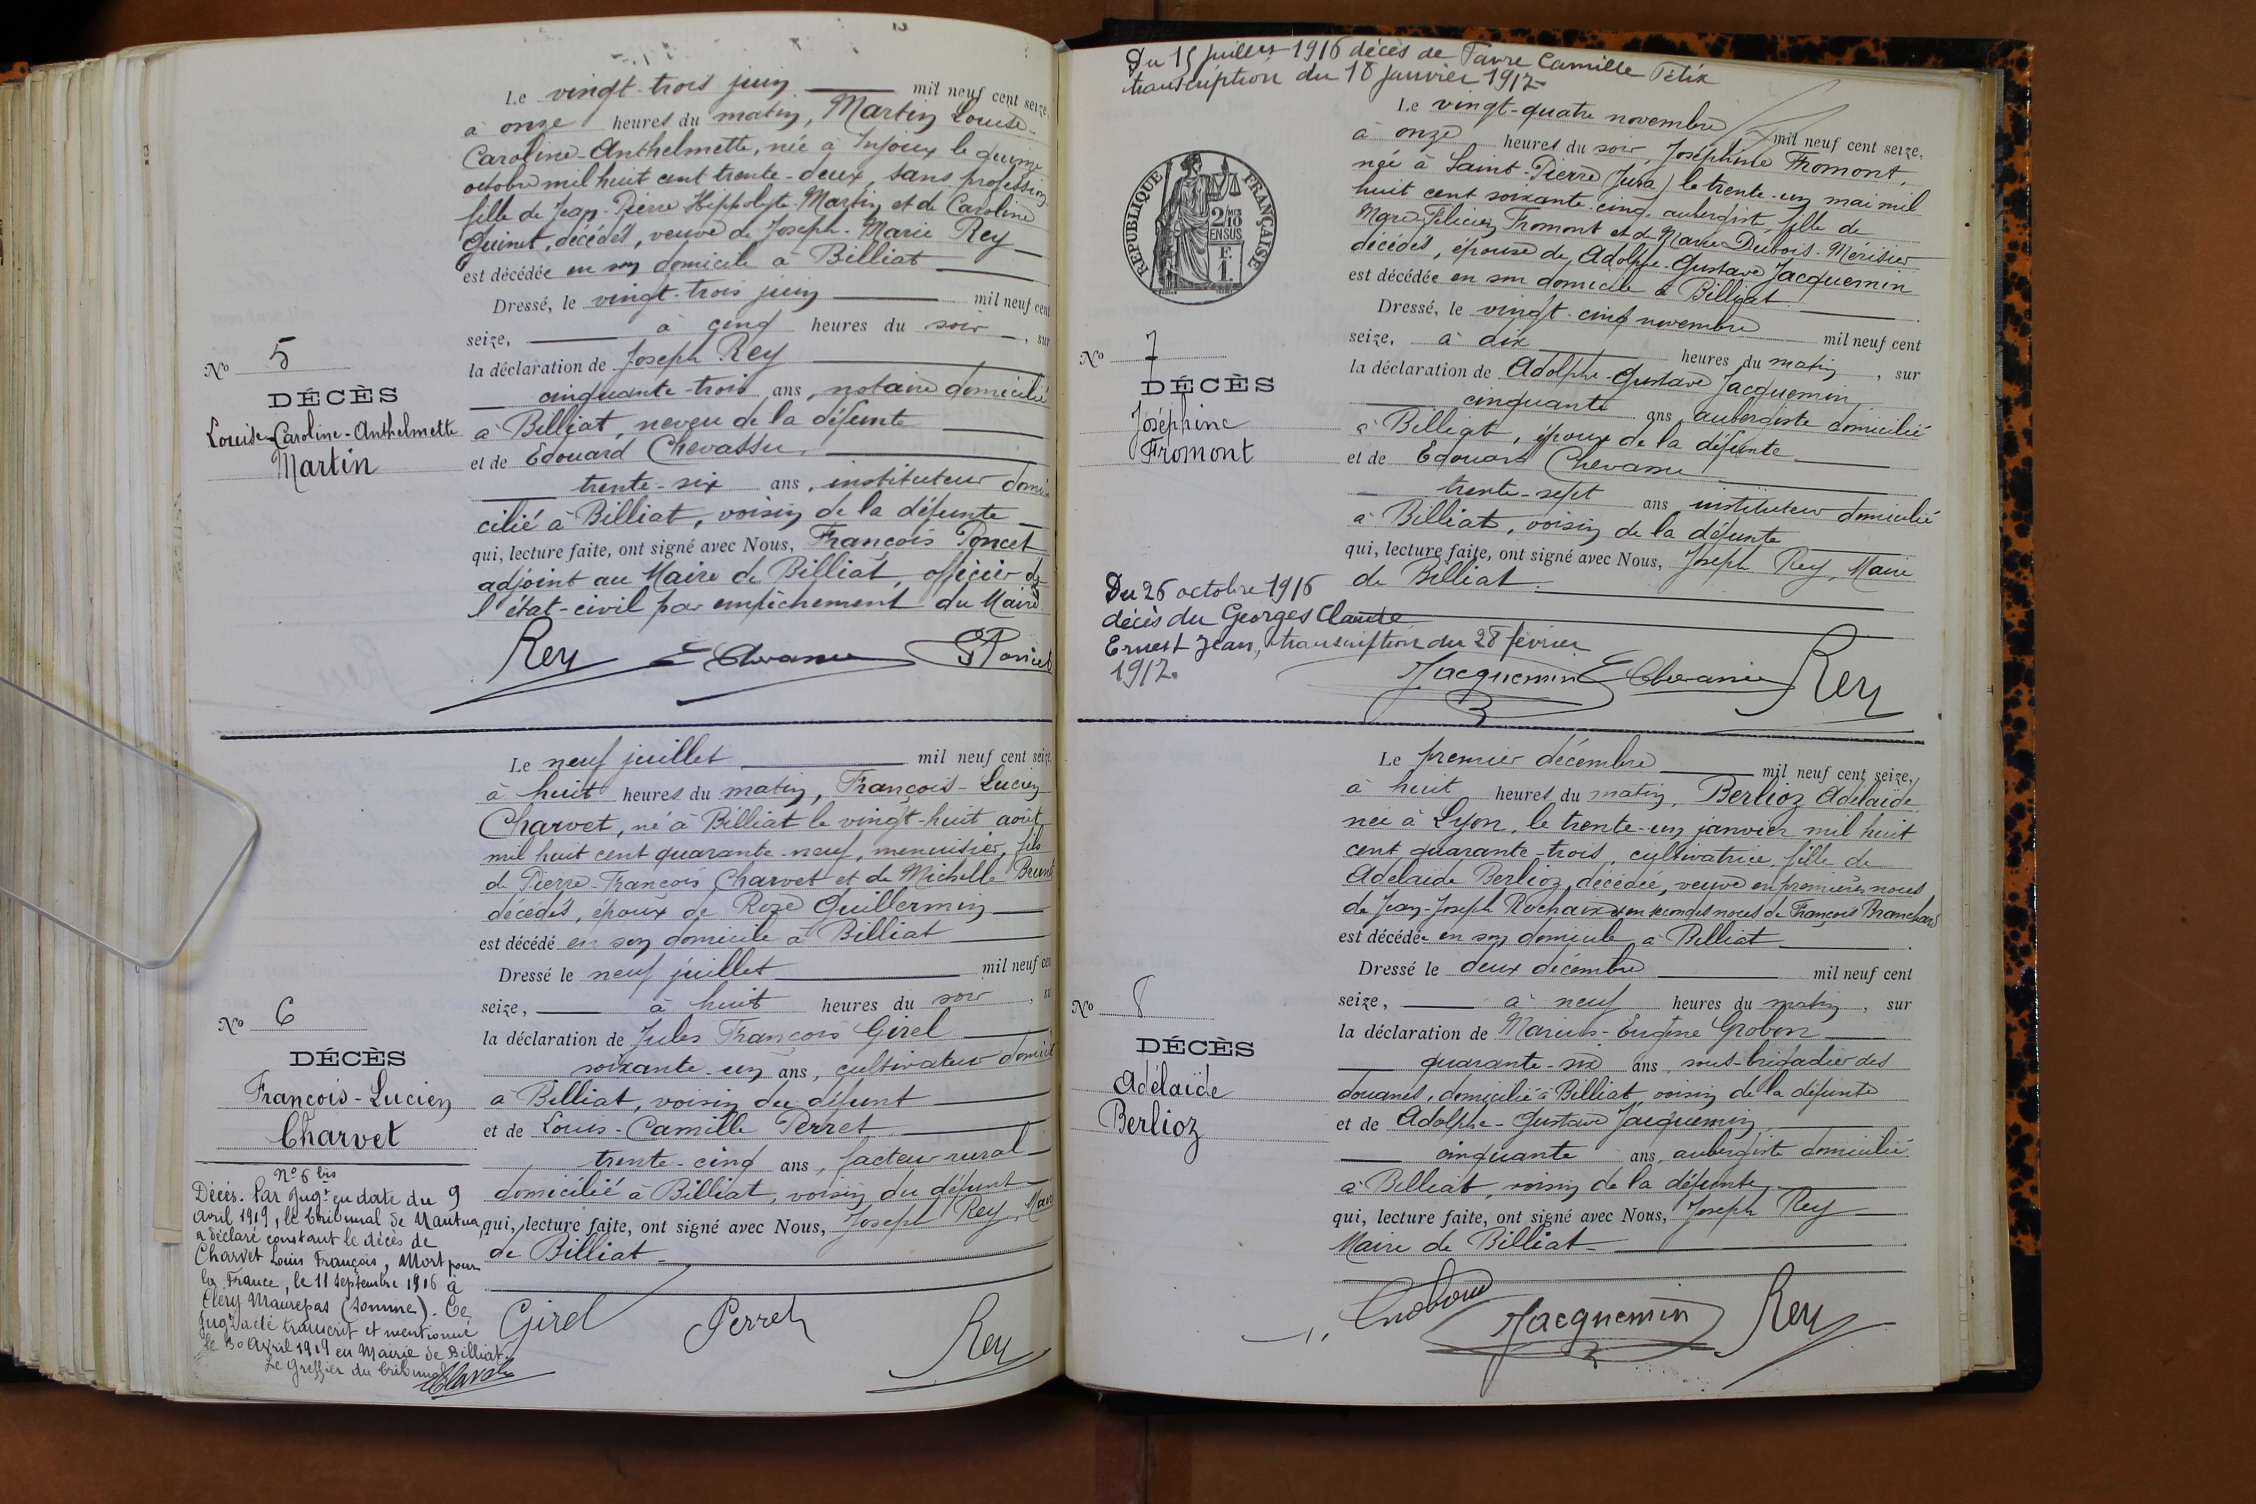 Le vingt-trois juin mil neuf cent seize,
à onze heures du matin, Martin Louise-
Caroline-Anthelmette, née à Injoux le quinze
octobre mil huit cent trente-deux, sans profession,
fille de Jean-Pierre Hippolyte Martin et de Caroline
Guinet, décédés, veuve de Joseph-Marie Rey
est décédée en son domicile à Billiat
Dressé, le vingt-trois juin mil neuf cent
seize, à cinq heures du soir, sur
la déclaration de Joseph Rey
cinquante-trois ans, notaire domicilié
à Billiat, neveu de la défunte
et de Edouard Chevassu,
trente-six ans, instituteur domi
cilié à Billiat, voisin de la défunte
qui, lecture faite, ont signé avec Nous, François Poncet
adjoint au Maire de Billiat, officier de
l'état-civil par empêchement du Maire
Rey E Chevassu F Poncet
No 5
DÉCÈS
Louise-Caroline-Anthelmette
Martin
Le neuf juillet mil neuf cent seize,
à huit heures du matin, François-Lucien
Charvet, né à Billiat le vingt-huit août
mil huit cent quarante-neuf, menuisier, fils
de Pierre-François Charvet et de Michelle Brunet
décédés, époux de Roze Guillermin
est décédé en son domicile à Billiat
Dressé le neuf juillet mil neuf cen
seize, à huit heures du soir, su
la déclaration de Jules François Girel
soixante-un ans, cultivateur domicil
à Billiat, voisin du défunt
et de Louis-Camille Perret
trente-cinq ans, facteur rural
domicilié à Billiat, voisin du défunt
qui, lecture faite, ont signé avec Nous, Joseph Rey, Maire
de Billiat
Girel Perret Rey
No 6
DÉCÈS
François-Lucien
Charvet
No 6 bis
Décès. Par jugt en date du 9
avril 1919, le tribunal de Nantua
a déclaré constant le décès de
Charvet Louis François, Mort pour
la France, le 11 septembre 1916 à
Cléry Maurepas (Somme). Ce
jugt a été transcrit et mentionné
le 30 Avril 1919 en Mairie de Billiat.
Le Greffier du tribunal
Du 15 juillet 1916 décès de Favre Camille Félix
transcription du 18 janvier 1917
Le vingt-quatre novembre mil neuf cent seize,
à onze heures du soir, Joséphine Fromont,
née à Saint-Pierre (Jura) le trente-un mai mil
huit cent soixante-cinq, aubergist, fille de
Marc-Félicien Fromont et de Marie Dubois-Mérisier
décédés, épouse de Adolphe-Gustave Jacquemin
est décédée en son domicile à Billiat
Dressé, le vingt-cinq novembre mil neuf cent
seize, à dix heures du matin, sur
la déclaration de Adolphe-Gustave Jacquemin,
cinquante ans, aubergiste domicilié
à Billiat, époux de la défunte
et de Edouard Chevassu
trente-sept ans, instituteur domicilié
à Billiat, voisin de la défunte
qui, lecture faite, ont signé avec Nous, Joseph Rey, Maire
de Billiat
Jacquemin E Chevassu Rey
RÉPUBLIQUE FRANÇAISE
2 MES
2/10
EN SUS
F.
1.
No 7
DÉCÈS
Joséphine
Fromont
Du 26 octobre 1916
décès du Georges Claude
Ernest Jean, transcription du 28 février
1917.
Le premier décembre mil neuf cent seize,
à huit heures du matin, Berlioz Adélaïde,
née à Lyon, le trente-un janvier mil huit
cent quarante-trois, cultivatrice, fille de
Adélaïde Berlioz, décédée, veuve en premières noces
de Jean-Joseph Rochaix et en secondes noces de François Branchard
est décédée en son domicile à Billiat
Dressé le deux décembre mil neuf cent
seize, à neuf heures du matin, sur
la déclaration de Marius-Eugène Grobon
quarante-six ans, sous-brigadier des
douanes, domicilié à Billiat, voisin de la défunte
et de Adolphe-Gustave Jacquemin,
cinquante ans, aubergiste domicilié
à Billiat, voisin de la défunte
qui, lecture faite, ont signé avec Nous, Joseph Rey
Maire de Billiat
Grobon Jacquemin Rey
No 8
DÉCÈS
Adélaïde
Berlioz